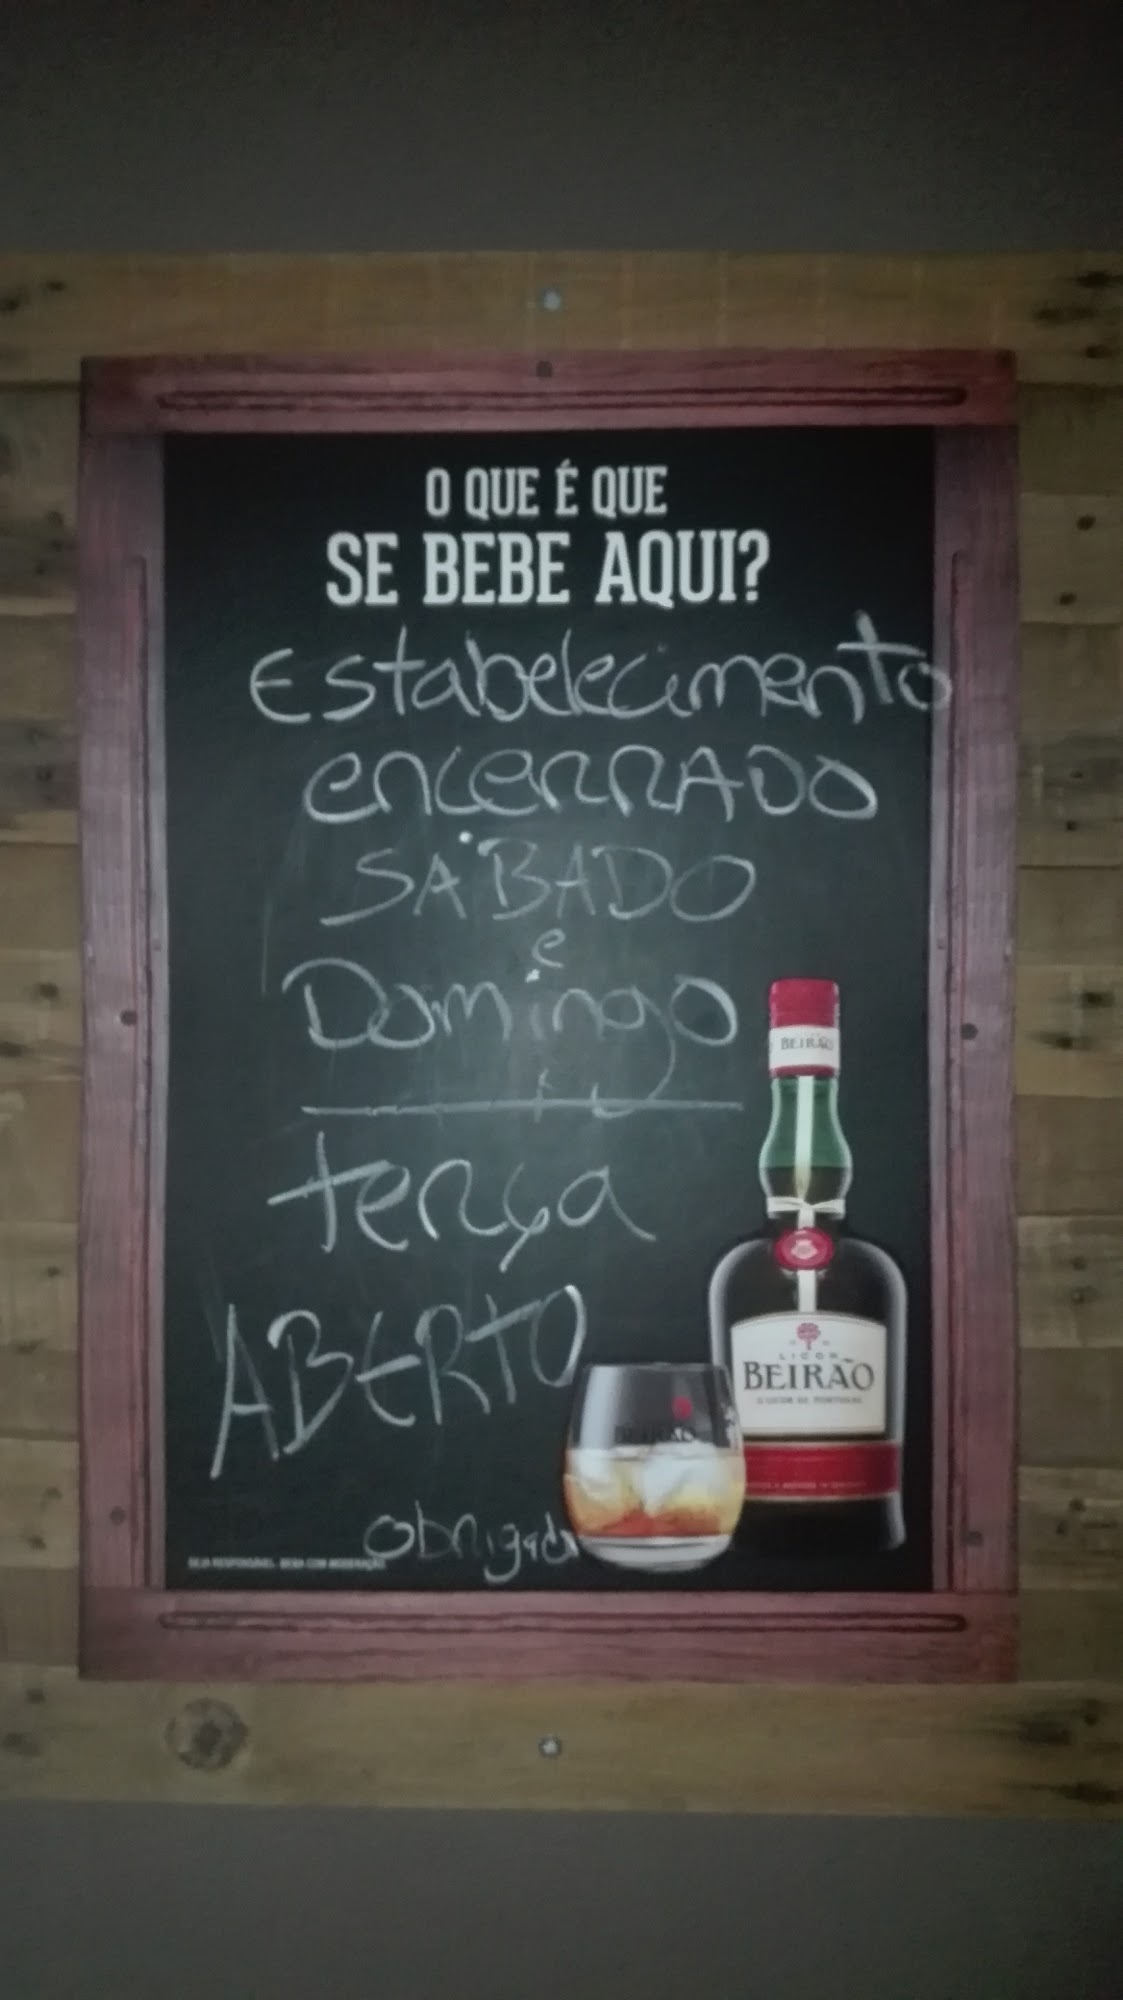 O QUE É QUE
SE BEBE AQUI?
Estabelecimento
encerrado
SÁBADO
e
Domingo
terça
ABERTO
obrigado
SEJA RESPONSÁVEL. BEBA COM MODERAÇÃO.
BEIRÃO
LICOR
BEIRÃO
O LICOR DE PORTUGAL
BEIRÃO